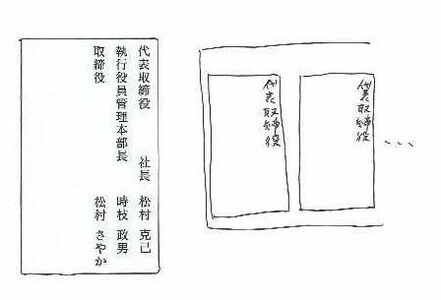 代表取締役 社長 松村 克己
執行役員管理本部長 時枝 政男
取締役 松村 さやか
代表取締役
代表取締役
...